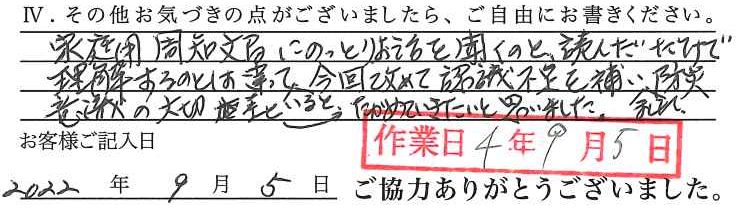 Ⅳ．その他お気づきの点がございましたら、ご自由にお書きください。
家庭用周知文局にのっとりお話を聞くのと、読んだだけで
理解するのとは違って、今回改めて認識不足を補い、防災
意識の大切 といると、 ていきたいと思いました。
お客様ご記入日
作業日 4年9月5日
2022年9月5日 ご協力ありがとうございました。